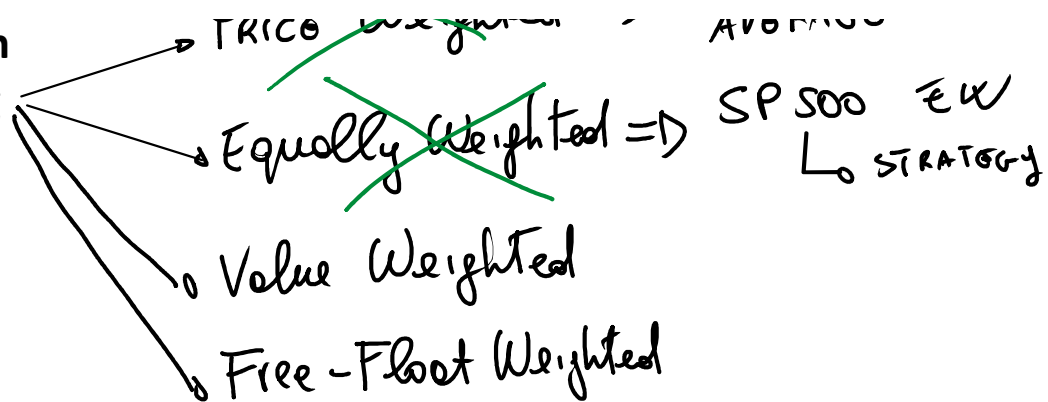 n
Price Weighted
AVERAGE
Equally Weighted => SP 500 EW
STRATEGY
Value Weighted
Free-Float Weighted